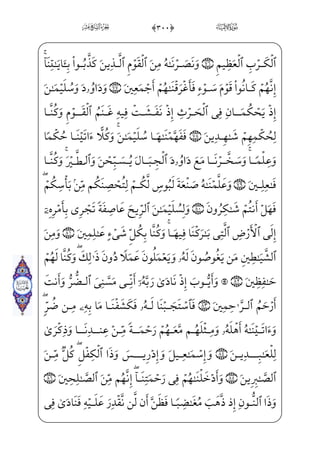 ٱلۡكَرۡبِ ٱلۡعَظِيمِ ٧٦ وَنَصَرۡنَٰهُ مِنَ ٱلۡقَوۡمِ ٱلَّذِينَ كَذَّبُواْ بِـَٔايَٰتِنَآۚ
إِنَّهُمۡ كَانُواْ قَوۡمَ سَوۡءٖ فَأَغۡرَقۡنَٰهُمۡ أَجۡمَعِينَ ٧٧ وَدَاوُۥدَ وَسُلَيۡمَٰنَ
إِذۡ يَحۡكُمَانِ فِي ٱلۡحَرۡثِ إِذۡ نَفَشَتۡ فِيهِ غَنَمُ ٱلۡقَوۡمِ وَكُنَّا
لِحُكۡمِهِمۡ شَٰهِدِينَ ٧٨ فَفَهَّمۡنَٰهَا سُلَيۡمَٰنَۚ وَكُلًّا ءَاتَيۡنَا حُكۡمٗا
وَعِلۡمٗاۚ وَسَخَّرۡنَا مَعَ دَاوُۥدَ ٱلۡجِبَالَ يُسَبِّحۡنَ وَٱلطَّيۡرَۚ وَكُنَّا
فَٰعِلِينَ ٧٩ وَعَلَّمۡنَٰهُ صَنۡعَةَ لَبُوسٖ لَّكُمۡ لِتُحۡصِنَكُم مِّنۢ بَأۡسِكُمۡۖ
فَهَلۡ أَنتُمۡ شَٰكِرُونَ ٨٠ وَلِسُلَيۡمَٰنَ ٱلرِّيحَ عَاصِفَةٗ تَجۡرِي بِأَمۡرِهِۦٓ
إِلَى ٱلۡأَرۡضِ ٱلَّتِي بَٰرَكۡنَا فِيهَاۚ وَكُنَّا بِكُلِّ شَيۡءٍ عَٰلِمِينَ ٨١ وَمِنَ
ٱلشَّيَٰطِينِ مَن يَغُوصُونَ لَهُۥ وَيَعۡمَلُونَ عَمَلٗا دُونَ ذَٰلِكَۖ وَكُنَّا لَهُمۡ
حَٰفِظِينَ ٨٢ ۞ وَأَيُّوبَ إِذۡ نَادَىٰ رَبَّهُۥٓ أَنِّي مَسَّنِيَ ٱلضُّرُّ وَأَنتَ
أَرۡحَمُ ٱلرَّٰحِمِينَ ٨٣ فَٱسۡتَجَبۡنَا لَهُۥ فَكَشَفۡنَا مَا بِهِۦ مِن ضُرّٖۖ
وَءَاتَيۡنَٰهُ أَهۡلَهُۥ وَمِثۡلَهُم مَّعَهُمۡ رَحۡمَةٗ مِّنۡ عِندِنَا وَذِكۡرَىٰ
لِلۡعَٰبِدِينَ ٨٤ وَإِسۡمَٰعِيلَ وَإِدۡرِيسَ وَذَا ٱلۡكِفۡلِۖ كُلّٞ مِّنَ
ٱلصَّٰبِرِينَ ٨٥ وَأَدۡخَلۡنَٰهُمۡ فِي رَحۡمَتِنَآۖ إِنَّهُم مِّنَ ٱلصَّٰلِحِينَ ٨٦
وَذَا ٱلنُّونِ إِذ ذَّهَبَ مُغَٰضِبٗا فَظَنَّ أَن لَّن نَّقۡدِرَ عَلَيۡهِ فَنَادَىٰ فِي